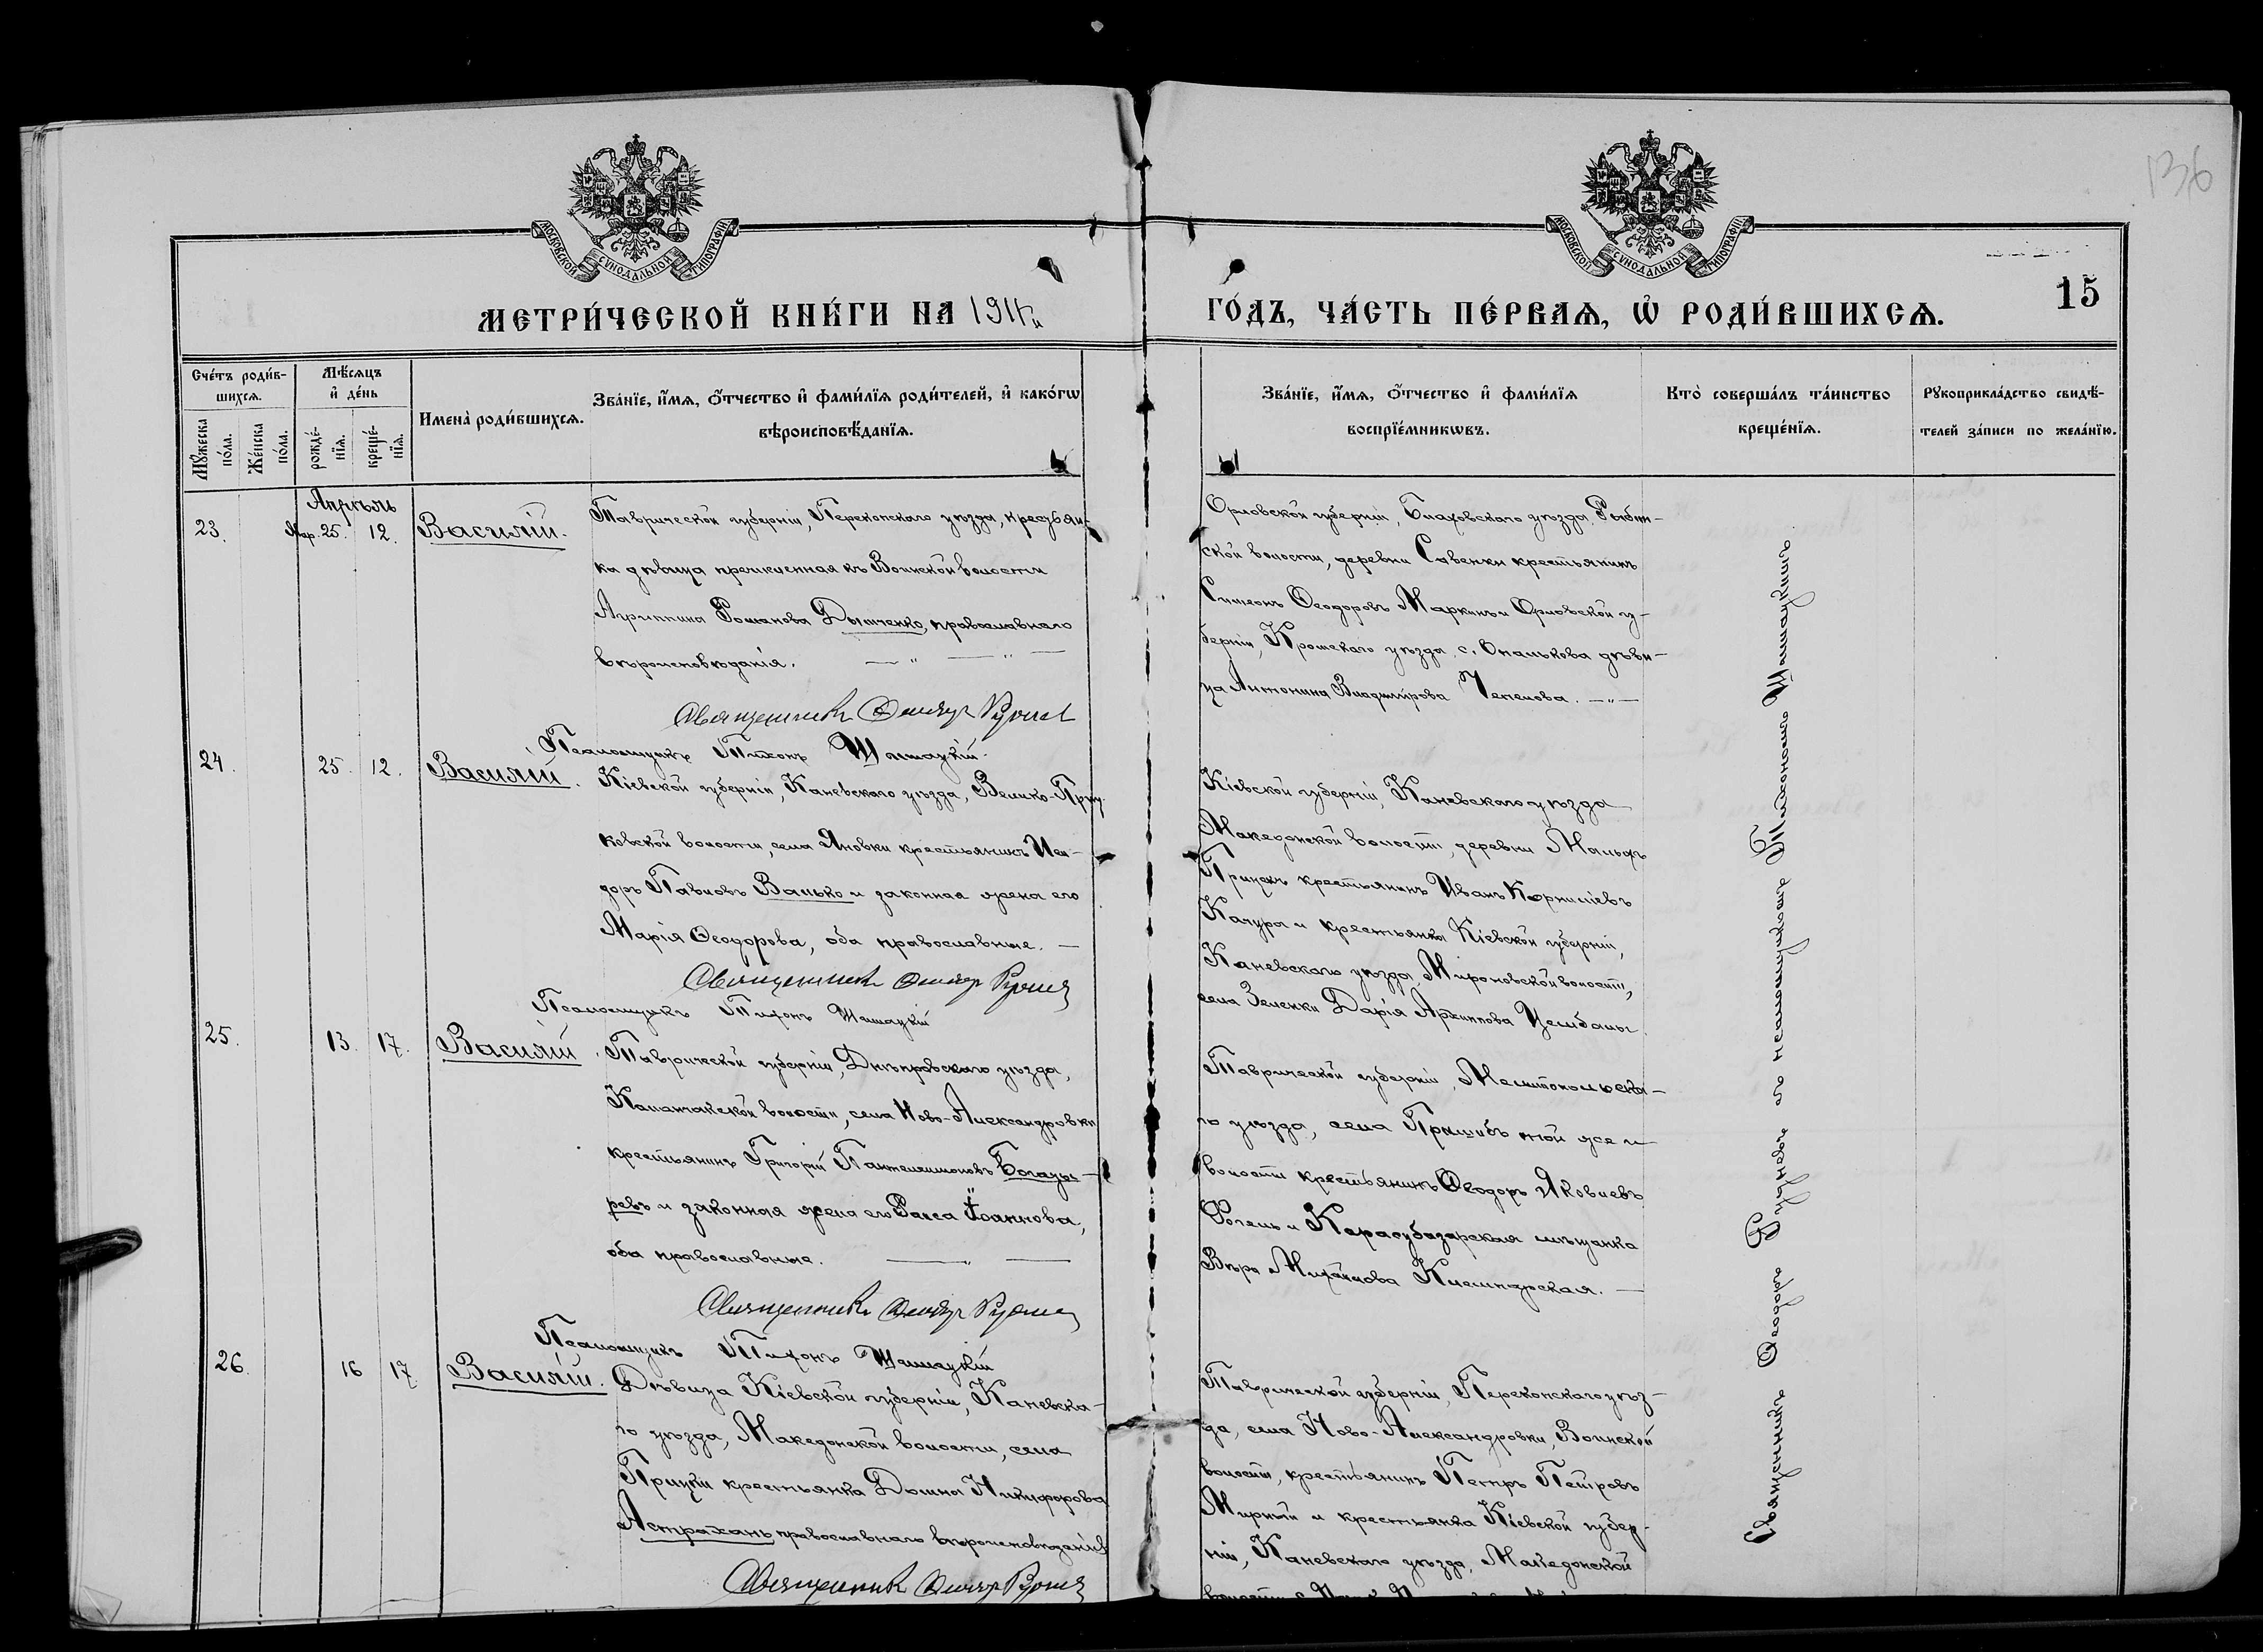 136
МОСКОВСКОЙ СѴНОДАЛЬНОЙ ТИПОГРАФІИ
МОСКОВСКОЙ СѴНОДАЛЬНОЙ ТИПОГРАФІИ
15
МЕТРИ́ЧЕСКОЙ КНИ́ГИ НА 1914
ГО́ДЪ, ЧА́СТЬ ПЕ́РВАѦ, Ѡ҆ РОДИ́ВШИХСѦ.
Сче́тъ роди́в-
шихсѧ.
Мꙋ́жеска
по́ла.
Же́нска
по́ла.
Мѣ́сѧцъ
и҆ де́нь
рожде́-
нїѧ.
креще́-
нїѧ.
Имена̀ роди́вшихсѧ.
Зва́нїе, и҆́мѧ, ѻ҆́тчество и҆ фами́лїѧ роди́телей, и҆ како́гѡ
вѣроисповѣ́данїѧ.
Зва́нїе, и҆́мѧ, ѻ҆́тчество и҆ фами́лїѧ
воспрїе́мникѡвъ.
Кто̀ соверша́лъ та́инство
креще́нїѧ.
Рꙋкоприкла́дство свидѣ́-
телей за́писи по жела́нїю.
Апрѣль
23. Мар. 25. 12. Василій.
Таврической губерніи, Перекопскаго уѣзда, крестьян-
ка дѣвица причисленная къ Воинской волости
Агриппина Романова Дымченко, православнаго
вѣроисповѣданія.
Священникъ Феодоръ Руднев
Псаломщикъ Тихонъ Шашацкій.
Орловской губерніи, Болховскаго уѣзда,
ской волости, деревни крестьянинъ
Симеонъ Ѳеодоровъ Маркинъ и Орловской гу-
берніи, Кромскаго уѣзда, с. дѣви-
ца Антонина Владимірова
24. 25. 12. Василій.
Кіевской губерніи, Каневскаго уѣзда, Велико-
ковской волости, села Яновки крестьянинъ Иси-
доръ Павловъ Валько и законная жена его
Марія Ѳеодорова, оба православные.
Священникъ Феодоръ Руднев
Псаломщикъ Тихонъ Шашацкій
Кіевской губерніи, Каневскаго уѣзда
Македонской волости, деревни Малыхъ
Прицекъ крестьянинъ Иванъ Корниліевъ
Качура и крестьянка Кіевской губерніи,
Каневскаго уѣзда, Мироновской волости,
села Зеленки Дарія Архиппова Цымбалы.
25. 13. 17. Василій.
Таврической губерніи, Днѣпровскаго уѣзда,
Каланчакской волости, села Ново-Александровки
крестьянинъ Григорій Пантелеимоновъ Богаты-
ревъ и законная жена его Раиса Іоаннова,
оба православные.
Священникъ Феодоръ Руднев
Псаломщикъ Тихонъ Шашацкій
Таврической губерніи, Мелитопольска-
го уѣзда, села Пришибъ той же и
волости крестьянинъ Ѳеодоръ Яковлевъ
и Карасубазарская мѣщанка
Вѣра Михайлова
26. 16 17. Василій.
Дѣвица Кіевской губерніи, Каневска-
го уѣзда, Македонской волости, села
Прицки крестьянка Домна Никифорова
Астрахань православнаго вѣроисповѣданія
Священникъ Феодоръ Руднев
Таврической губерніи, Перекопскаго уѣз-
да, села Ново-Александровки, Воинской
волости, крестьянинъ Петръ Петровъ
Мирный и крестьянка Кіевской губер-
ніи, Каневскаго уѣзда, Македонской
Священникъ Ѳеодоръ Рудневъ съ псаломщикомъ Тихономъ Шашацкимъ